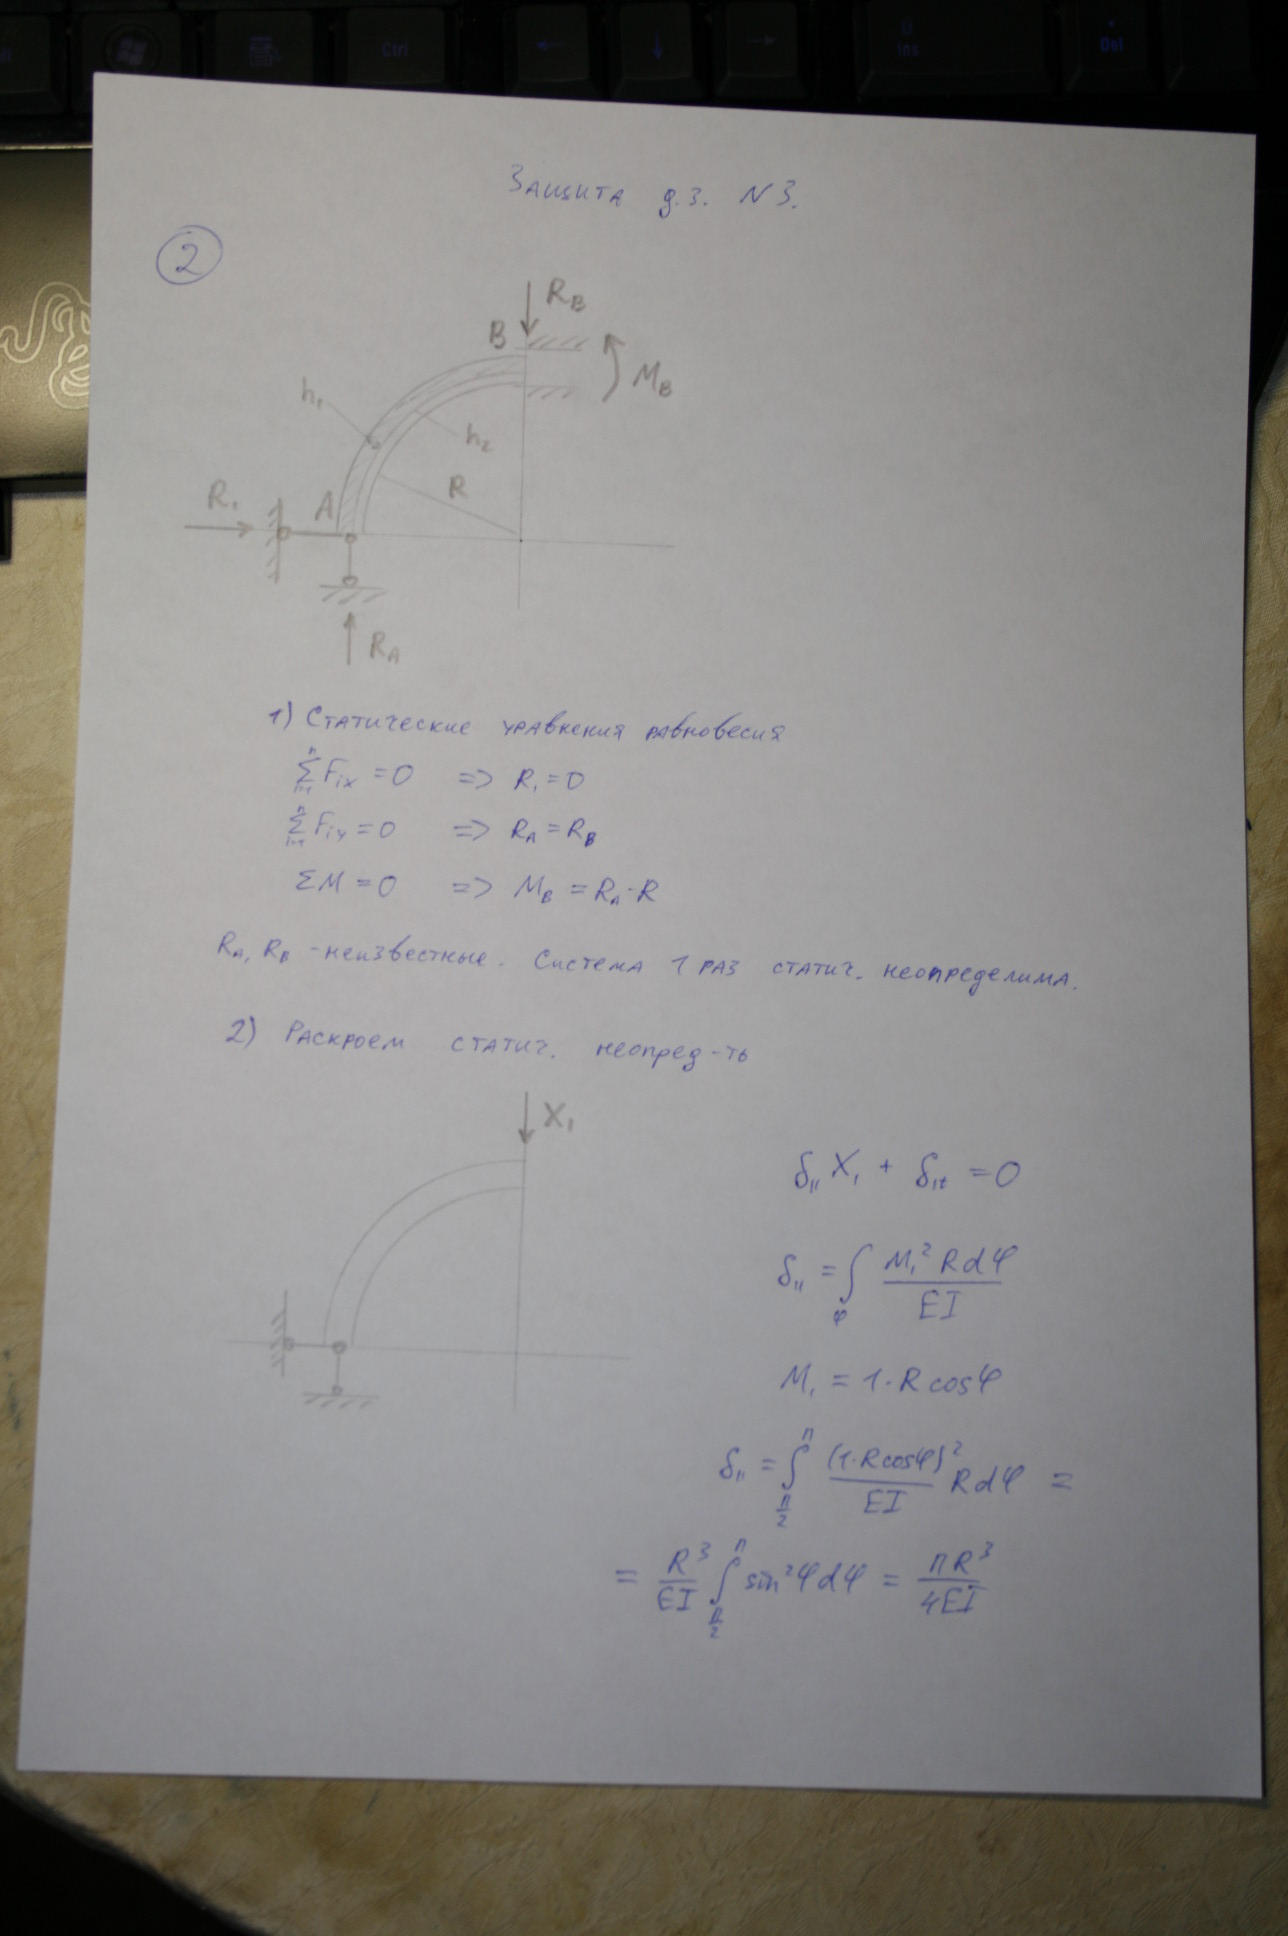 Ctrl
Ü
ins
Del
Защита д.з. N3.
2
R_B
B
M_B
h₁
h₂
R
A
R₁
R_A
1) Статические уравнения равновесия
∑_{i=1}^{n} F_{ix} = 0 => R₁ = 0
∑_{i=1}^{n} F_{iy} = 0 => R_A = R_B
∑M = 0 => M_B = R_A · R
R_A, R_B - неизвестные. Система 1 раз статич. неопределима.
2) Раскроем статич. неопред-ть
X₁
δ₁₁ X₁ + δ₁t = 0
δ₁₁ = ∫_φ M₁² R dφ / EI
M₁ = 1 · R cosφ
δ₁₁ = ∫_{π/2}^{π} (1·R cosφ)² / EI R dφ =
= R³/EI ∫_{π/2}^{π} sin²φ dφ = πR³ / 4EI